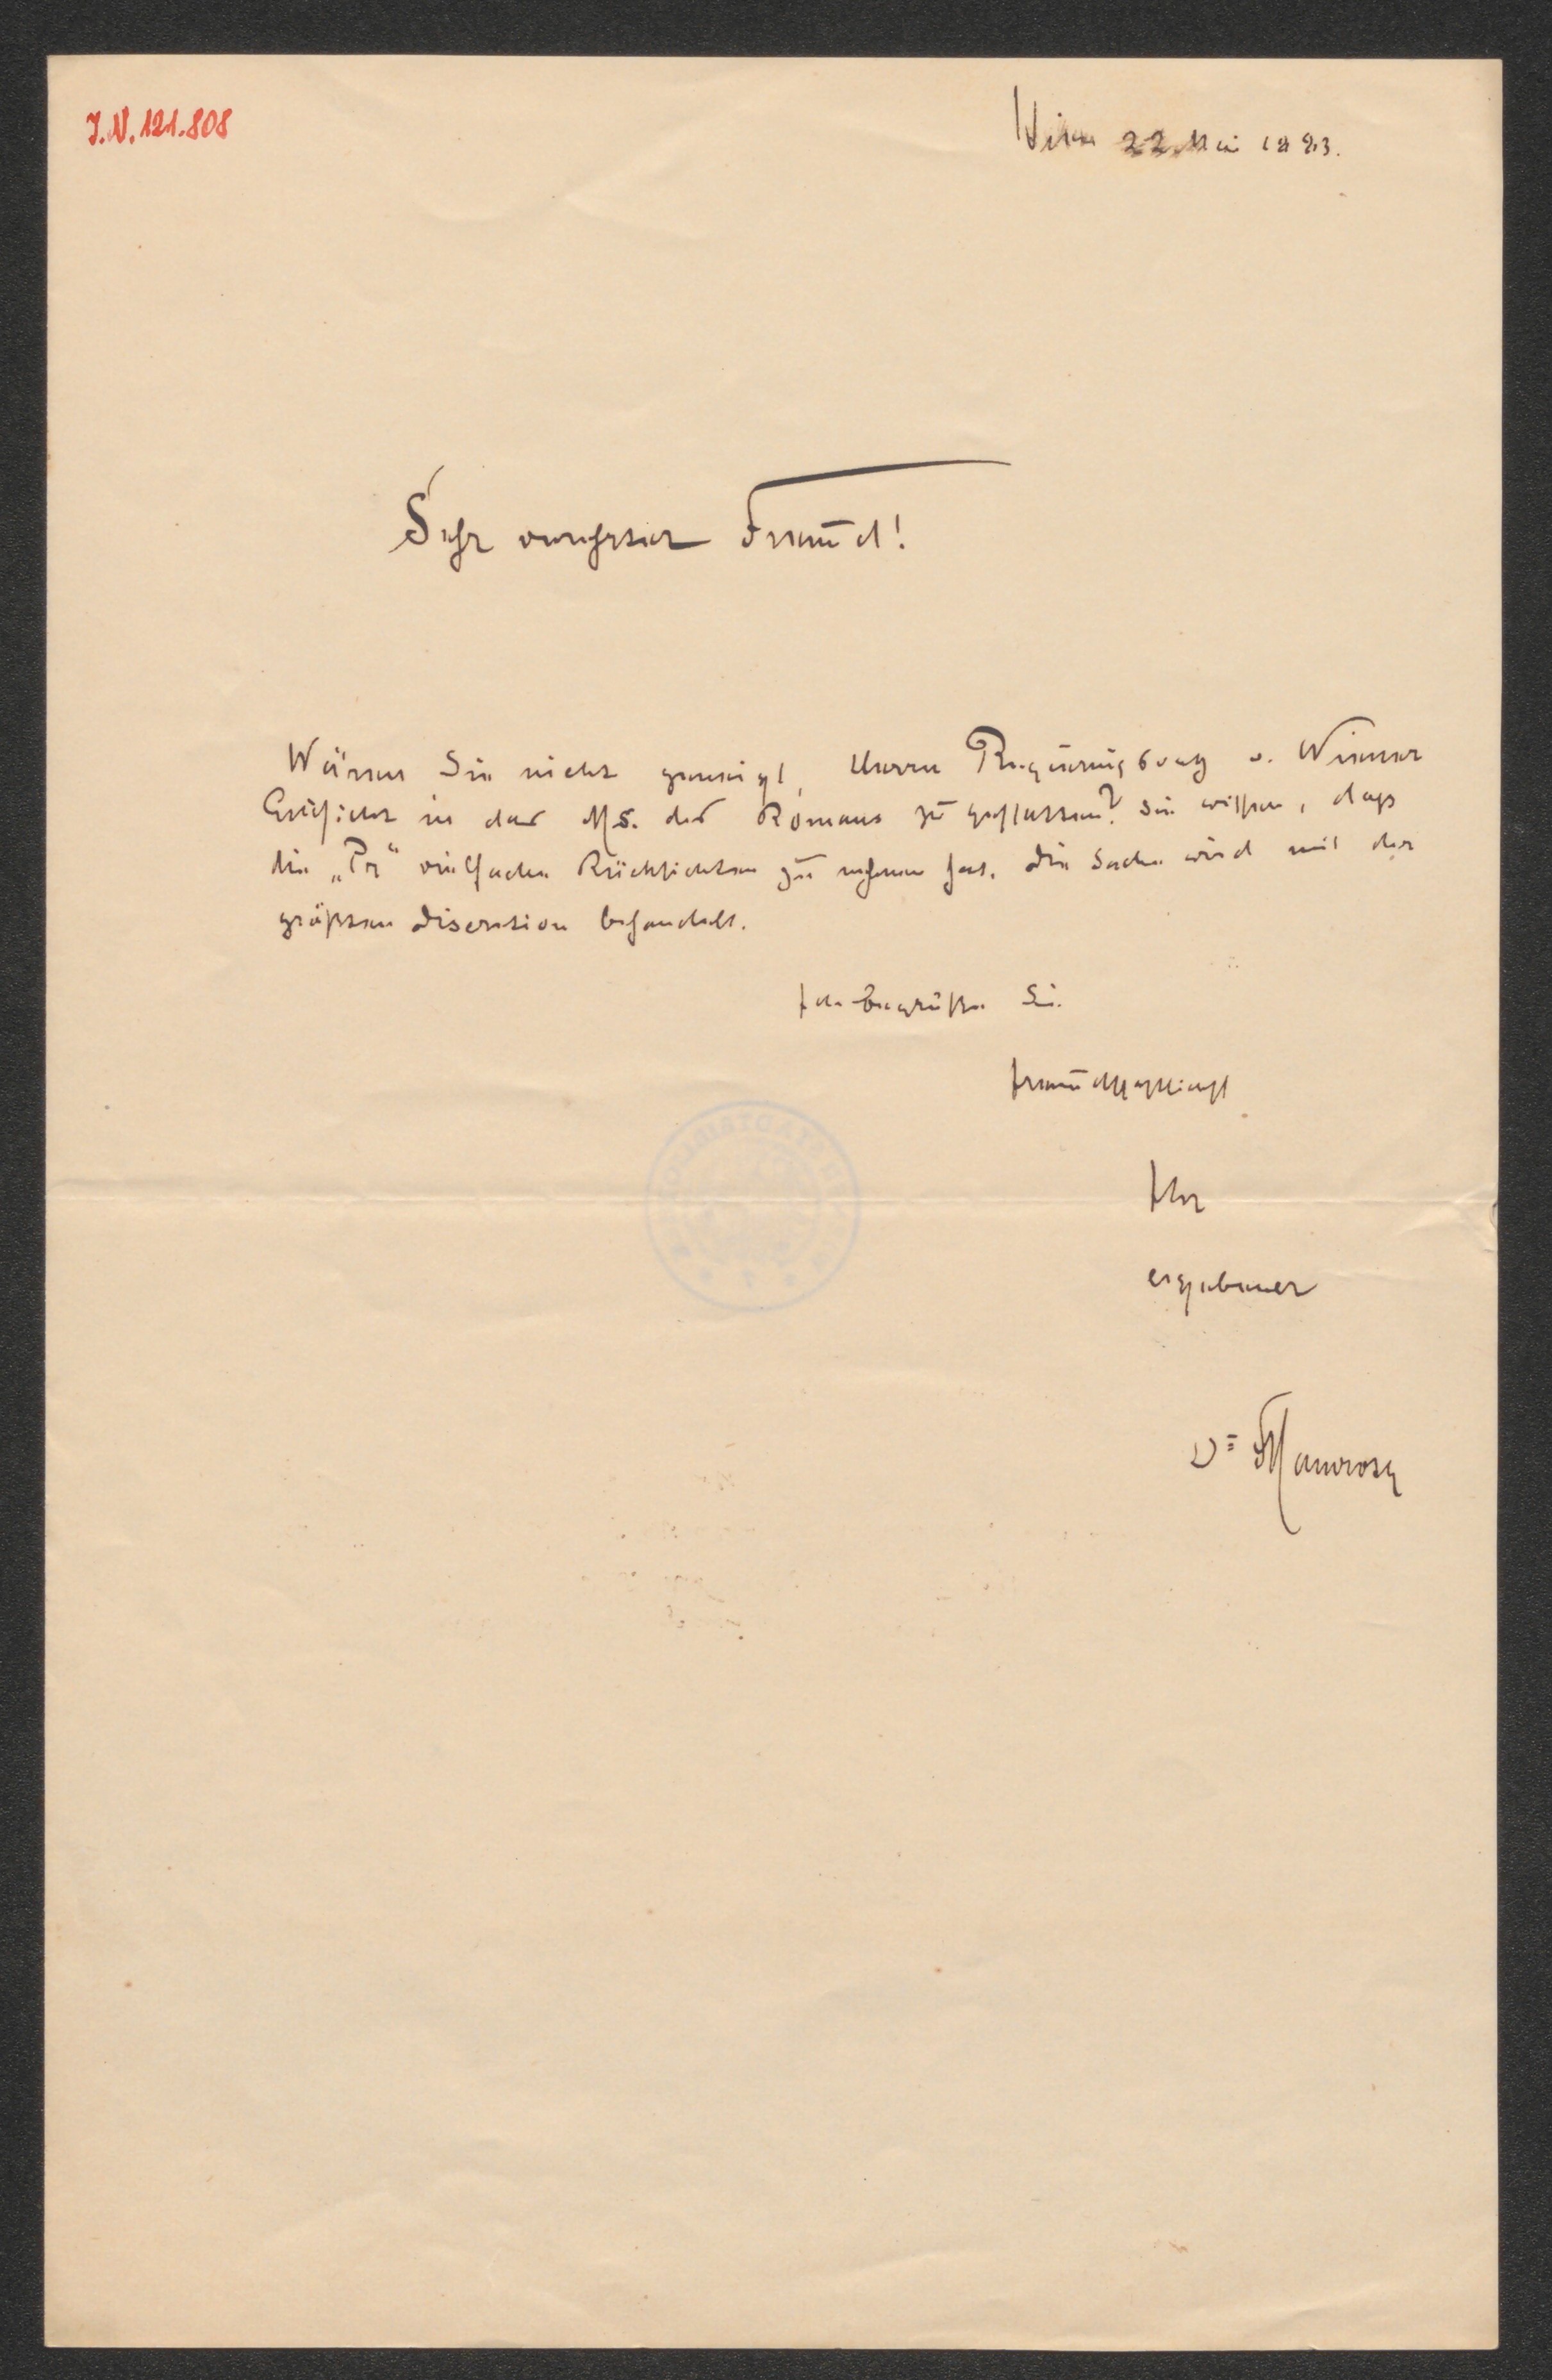 J.N. 121.808
Wien 22 Mai 1893.
Sehr verehrter Freund!
Wären Sie nicht geneigt, Herrn Regierungsrath v. Wiener
Einsicht in das Ms. des Romans zu gestatten? Sie wissen, dass
die „Pr“ vielfache Rücksichten zu nehmen hat. Die Sache wird mit der
größten Discretion behandelt.
Ich begrüße Sie
freundschaftlichst
Ihr
ergebener